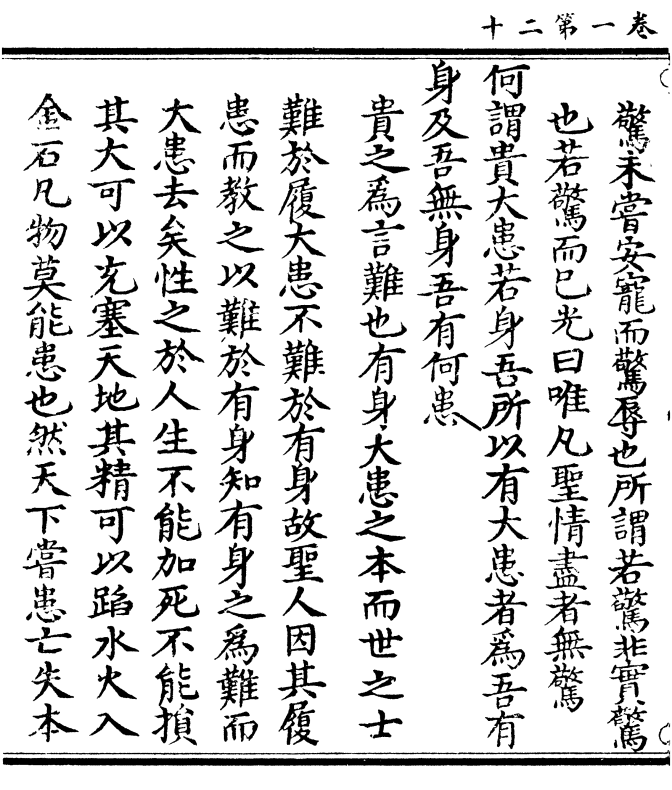 卷一第二十
驚未嘗安寵而驚辱也所謂若驚非實驚
也若驚而已光曰唯凡聖情盡者無驚
何謂貴大患若身吾所以有大患者為吾有
身及吾無身吾有何患
貴之為言難也有身大患之本而世之士
難於履大患不難於有身故聖人因其履
患而教之以難於有身知有身之為難而
大患去矣性之於人生不能加死不能損
其大可以充塞天地其精可以蹈水火入
金石凡物莫能患也然天下嘗患亡失本